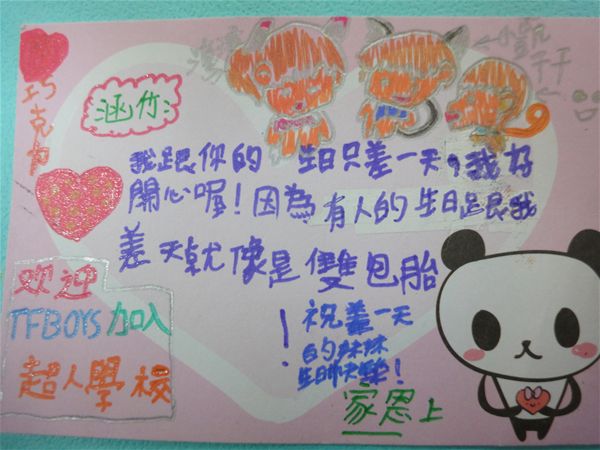 巧克力
涵竹:
我跟你的 生日只差一天,我好
開心喔!因為有人的生日跟我
差一天就像是雙包胎
!
祝差一天
的妹妹
生日快樂!
家恩上
欢迎
TFBOYS加入
超人學校
小凱
千千